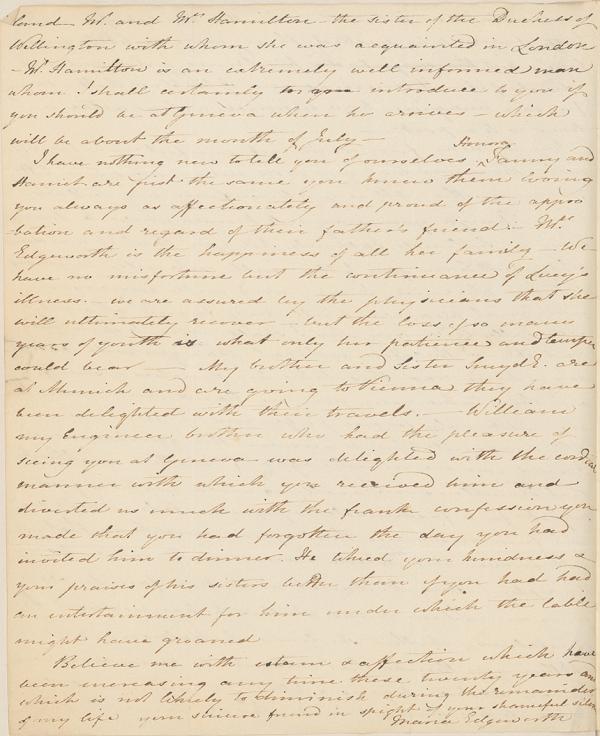 lond - Mr. and Mrs. Hamilton - the sister of the Duchess of
Wellington with whom she was acquainted in London
- Mr. Hamilton is an extremely well informed man
whom I shall certainly to you introduce to you if
you should be at Geneva when he arrives - which
will be about the month of July -
Honora
I have nothing new to tell you of ourselves ^ Fanny and
Harriet are just the same you knew them loving
you always as affectionately and proud of the appro
bation and regard of their father's friend - Mrs.
Edgeworth is the happiness of all her family - We
have no misfortune but the continuance of Lucy's
illness. - we are assured by the physicians that she
will ultimately recover - but the loss of so many
years of youth is what only her patience and temper
could bear - My brother and Sister Sneyd E. are
at Munich and are going to Vienna they have
been delighted with their travels. - William
my Engineer brother who had the pleasure of
seeing you at Geneva was delighted with the cordial
manner with which you received him and
diverted us much with the frank confession you
made that you had forgotten the day you had
invited him to dinner. He liked your kindness &
your praises of his sisters better than if you had had
an entertainment for him under which the table
might have groaned
Believe me with esteem & affection which have
been increasing any time these twenty years and
which is not likely to diminish during the remainder
of my life your sincere friend in spight of your shameful silence
Maria Edgeworth